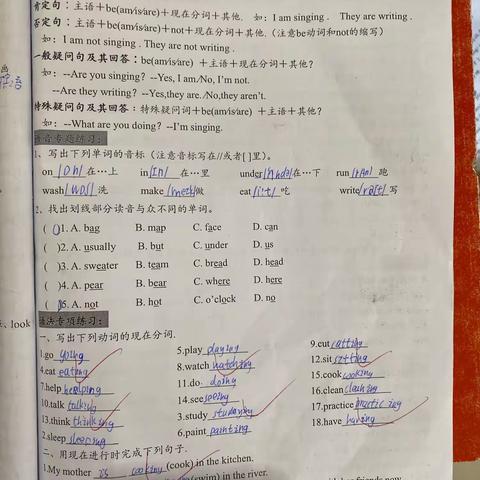 肯定句：主语+be(am/is/are)+现在分词+其他. 如：I am singing . They are writing .
否定句：主语+be(am/is/are)+not+现在分词+其他.（注意be动词和not的缩写）
如：I am not singing . They are not writing .
一般疑问句及其回答：be(am/is/are) +主语+现在分词+其他？
如：--Are you singing? --Yes, I am./No, I'm not.
--Are they writing? --Yes,they are./No,they aren't.
特殊疑问句及其回答：特殊疑问词+be(am/is/are) +主语+其他？
如：--What are you doing? --I'm singing.
语音专题练习：
1、写出下列单词的音标（注意音标写在//或者[ ]里）。
on 在…上 in 在…里 under 在…下 run 跑
wash 洗 make 做 eat 吃 write 写
2、找出划线部分读音与众不同的单词。
( )1. A. bag B. map C. face D. can
( )2. A. usually B. but C. under D. us
( )3. A. sweater B. team C. bread D. head
( )4. A. pear B. bear C. where D. here
( )5. A. not B. hot C. o'clock D. no
语法专项练习：
一、写出下列动词的现在分词.
1.go going 5.play playing 9.cut cutting
4.eat eating 8.watch watching 12.sit sitting
7.help helping 11.do doing 15.cook cooking
10.talk talking 14.see seeing 16.clean
13.think thinking 3.study studying 17.practice practicing
2.sleep sleeping 6.paint painting 18.have having
二、用现在进行时完成下列句子.
1.My mother is cooking (cook) in the kitchen.
(swim) in the river.
look